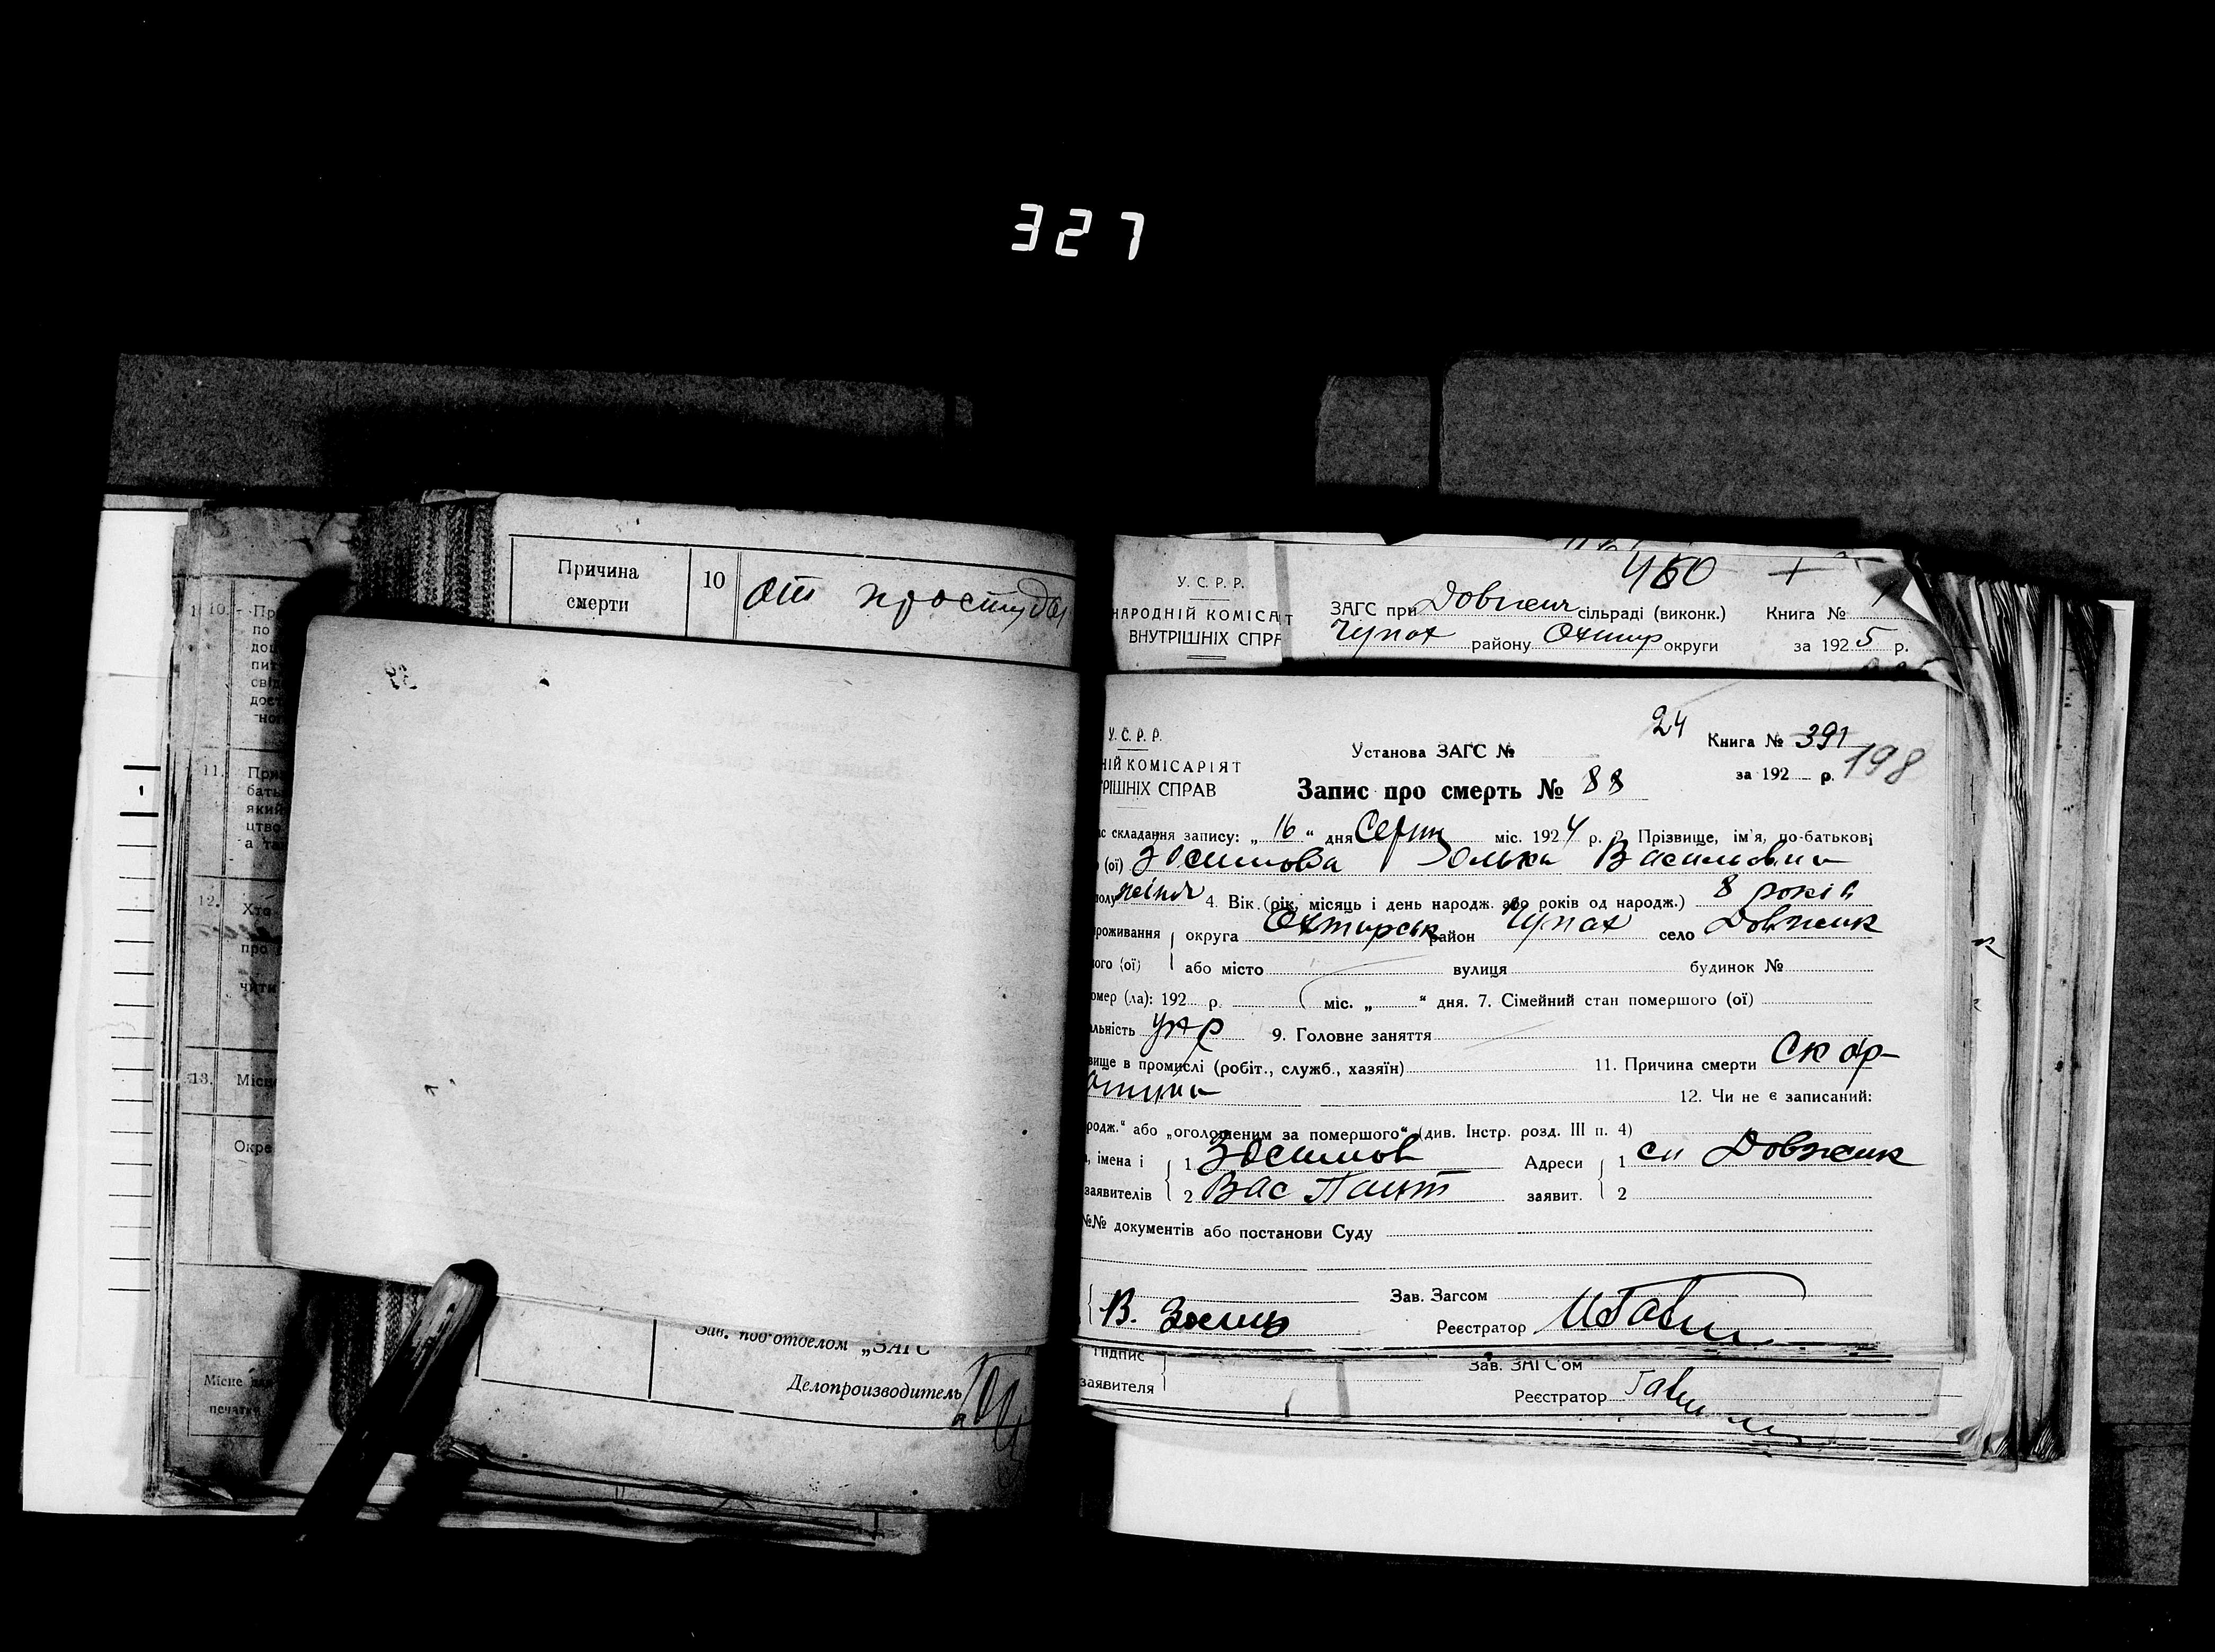 327
Причина
смерти
10
от простуды
10.
11.
12.
13.
Зав. под'отделом „ЗАГС"
Делопроизводитель
У. С. Р. Р.
НАРОДНІЙ КОМІСА Т
ВНУТРІШНІХ СПР
450
ЗАГС при Довжик сільраді (виконк.) Книга №
Чупах району Охтир округи за 1925 р.
У. С. Р. Р.
НІЙ КОМІСАРІЯТ
РІШНІХ СПРАВ
Установа ЗАГС №
24
Книга № 391
за 192 р. 198
Запис про смерть № 88
с складання запису: „16" дня Серпн міс. 1924 р. 2. Прізвище, ім'я, по-батькові
(ої) Зосимова Васильовна
полу жіноч 4. Вік (рік, місяць і день народж. або років од народж.) 8 років
роживання округа Охтирськ район Чупах село Довжик
ого (ої) або місто вулиця будинок №
омер (ла): 192 р. міс. „ " дня. 7. Сімейний стан помершого (ої)
альність укр 9. Головне заняття
вище в промислі (робіт., служб., хазяїн) 11. Причина смерти Скар-
латина
12. Чи не є записаний:
родж." або „оголошеним за помершого" (див. Інстр. розд. III п. 4)
, імена і 1 Зосимов Адреси 1 сл Довжик
заявителів 2 Вас заявит. 2
№№ документів або постанови Суду
Зав. Загсом
В. Реєстратор
Підпис
заявителя
Зав. ЗАГС'ом
Реєстратор
Місце для
печатки